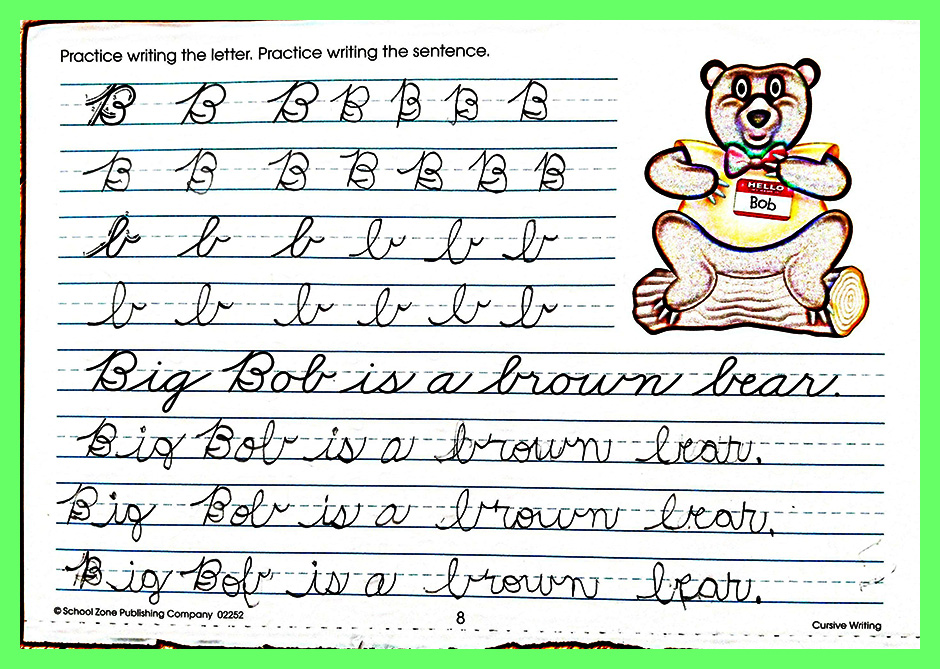 Practice writing the letter. Practice writing the sentence.
B B B B B B B
HELLO
Bob
B B B B B B B
b b b b b b
b b b b b b
Big Bob is a brown bear.
Big Bob is a brown bear.
Big Bob is a brown bear.
Big Bob is a brown bear.
© School Zone Publishing Company 02252
8
Cursive Writing